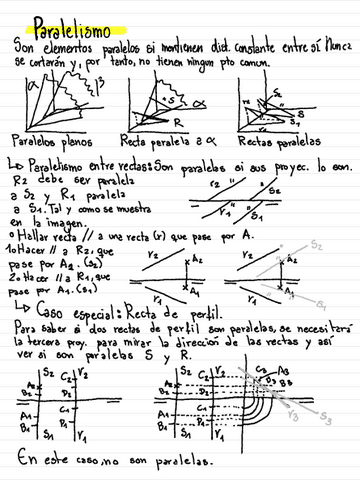 Paralelismo
Son elementos paralelos si mantienen dist. constante entre sí. Nunca
se cortarán y, por tanto, no tienen ningun pto comun.
α β
r s α R
r2 s2 R S1
Paralelos planos Recta paralela a α Rectas paralelas
↳ Paralelismo entre rectas: Son paralelas si sus proyec. lo son.
R2 debe ser paralela
a S2 y R1 paralela
a S1. Tal y como se muestra
en la imagen.
r2 " " S2
r1 " " S1
o Hallar recta // a una recta (r) que pase por A.
1o Hacer // a R2, que
pase por A2. (s2)
2o Hacer // a R1, que
pase por A1. (s1)
r2 A2 A1 r1
r2 A2 S2 A1 r1 S1
↳ Caso especial: Recta de perfil.
Para saber si dos rectas de perfil son paralelas, se necesitará
la tercera proy. para mirar la dirección de las rectas y asi
ver si son paralelas S y R.
S2 C2 r2
A2 B2 D2
A1 B1 C1 D1
S1 r1
S2 C2 r2 C3 A3
A2 B2 D2 D3 B3
A1 B1 C1 D1 r3 S3
S1 r1
En este caso, no son paralelas.